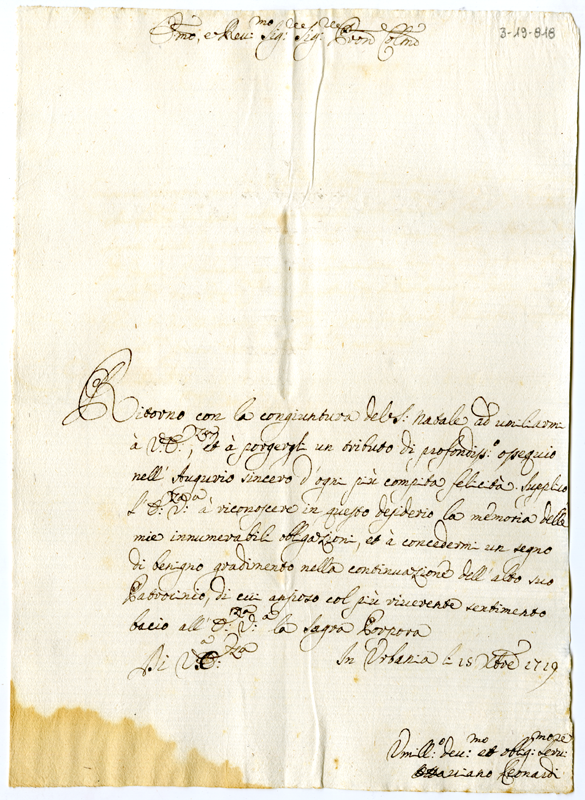 3-19-818
Emo, e Reu:mo Sig:re Sig:re Pron Colmo
Ritorno con la congiuntura del S: Natale ad umiliarmi
à V.E:za, et à porgergli un tributo di profondiss:o ossequio
nell'Augurio sincero d'ogni più compita felicità. Supplico
l'E:za V:a à riconoscere in questo desiderio la memoria delle
mie innumerabili obligazioni, et à concedermi un segno
di benigno gradimento nella continuazione dell'alto suo
Patrocinio, di cui ansioso col più riverente sentimento
bacio all'E:za V:a la Sagra Porpora
Di V:a E:za In Urbania li 15 Xbre 1719
Umill:o deu:mo et oblig:mo Seru:re
Ottaviano Leonardi